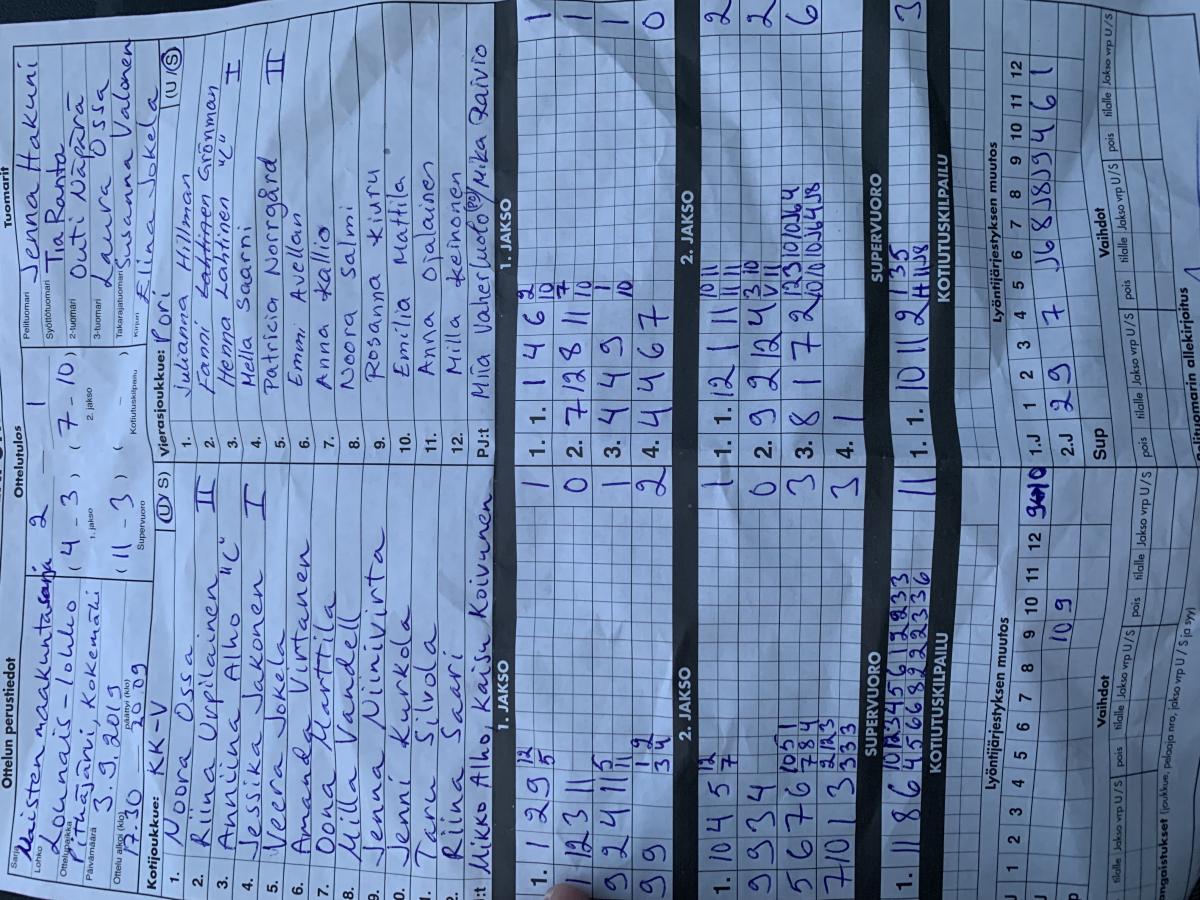 Ottelun perustiedot
Sarja Naisten maakuntasarja
Lohko Lounais-lohko
Ottelupaikka Pitkäjärvi, Kokemäki
Päivämäärä 3.9.2019
Ottelu alkoi (klo) 17.30 päättyi (klo) 20.09
Ottelutulos
2 — 1
( 4 - 3 ) ( 7 - 10 )
1. jakso 2. jakso
( 11 - 3 ) ( - )
Supervuoro Kotiutuskilpailu
Tuomarit
Pelituomari Jenna Hakuni
Syöttötuomari Tia Ranta
2-tuomari Outi Näpärä
3-tuomari Laura Ossa
Takarajatuomari Susanna Valonen
Kirjuri Elina Jokela
Kotijoukkue: KK-V (U/S)
1. Noora Ossa
2. Riina Urpilainen II
3. Anniina Alho "C"
4. Jessika Jakonen I
5. Veera Jokela
6. Amanda Virtanen
7. Oona Marttila
8. Milla Vandell
9. Jenna Niinivirta
10. Jenni Kurkola
1. Taru Silvola
2. Riina Saari
:t Mikko Alho, Kaisu Koivunen
Vierasjoukkue: Pori (U/S)
1. Julianna Hillman
2. Fanni Lahtinen Grönman
3. Henna Lahtinen "C" I
4. Mella Saarni
5. Patricia Norrgård II
6. Emmi Avellan
7. Anna Kallio
8. Noora Salmi
9. Rosanna Kiuru
10. Emilia Mattila
11. Anna Ojalainen
12. Milla Keinonen
PJ:t Miia Vaherluoto (PJ) / Mika Raivio
1. JAKSO
1. 1 2 9 12 5 1
1 12 3 11 0
9 2 4 11 5 11 1
9 9 1 2 3 4 2
1. JAKSO
1. 1. 1 4 6 2 10 1
2. 7 12 8 11 7 10 1
3. 4 4 9 1 10 1
4. 4 4 6 7 0
2. JAKSO
1. 10 4 5 12 7 1
9 9 3 4 0
5 6 7 6 10 5 1 7 8 4 3
7 10 1 3 2 12 3 3 3 3 3
2. JAKSO
1. 1. 12 1 11 10 11 11 11 2
2. 9 2 12 4 3 10 V 11 2
3. 8 1 7 2 6
4. 1
SUPERVUORO
1. 11 8 6 11
SUPERVUORO
1. 1. 10 11 2 3
KOTIUTUSKILPAILU
KOTIUTUSKILPAILU
Lyöntijärjestyksen muutos
1 2 3 4 5 6 7 8 9 10 11 12
10 9
Lyöntijärjestyksen muutos
1 2 3 4 5 6 7 8 9 10 11 12
1.J
2.J 2 9 7
Sup
Vaihdot
pois tilalle Jakso vrp U/S pois tilalle Jakso vrp U/S
Vaihdot
pois tilalle Jakso vrp U/S pois tilalle Jakso vrp U/S
angaistukset (joukkue, pelaaja nro, jakso vrp / U/S ja syy)
allekirjoitus